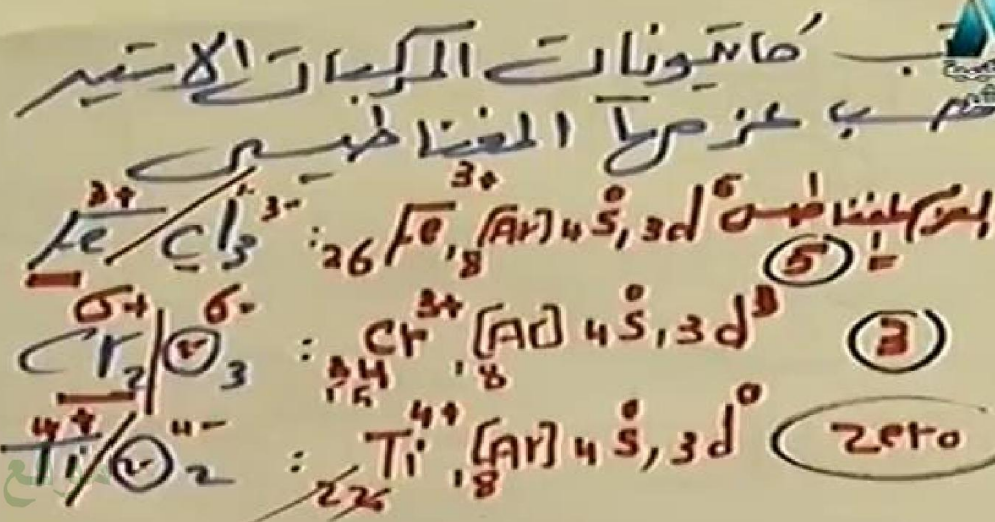 كاتيونات المركبات الاتية
حسب عزمها المغناطيسى
Fe³⁺/Cl₃³⁻ : ₂₆Fe³⁺, ₁₈[Ar] 4s⁰, 3d⁵ العزم المغناطيسى = 5
Cr₂⁶⁺/O₃⁶⁻ : ₂₄Cr³⁺, ₁₈[Ar] 4s⁰, 3d³ 3
Ti⁴⁺/O₂⁴⁻ : ₂₂Ti⁴⁺, ₁₈[Ar] 4s⁰, 3d⁰ zero